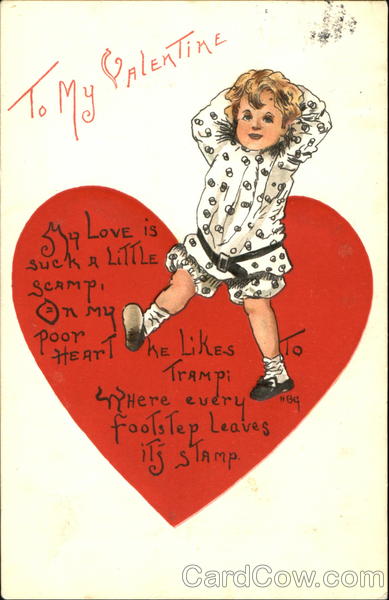 To My Valentine
My Love is
such a Little
scamp,
On my
poor
Heart he Likes To
Tramp;
Where every
footstep Leaves
it's stamp.
HBG
CardCow.com